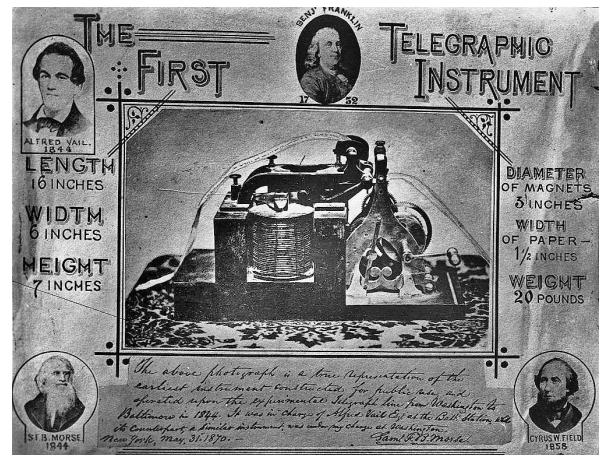 THE FIRST
BENJ. FRANKLIN
1752
TELEGRAPHIC
INSTRUMENT
ALFRED VAIL.
1844
LENGTH
16 INCHES
WIDTH
6 INCHES
HEIGHT
7 INCHES
DIAMETER
OF MAGNETS
3 INCHES
WIDTH
OF PAPER—
1 1/2 INCHES
WEIGHT
20 POUNDS
The above photograph is a true representation of the
earliest instrument constructed for public use and
operated upon the experimental Telegraph line from Washington to
Baltimore in 1844. It was in charge of Alfred Vail Esq at the Balt. Station and
its counterpart, a similar instrument, was under my charge at Washington.
New York, May, 31. 1870.— Saml. F. B. Morse.
S.F.B. MORSE
1844
CYRUS W. FIELD
1858